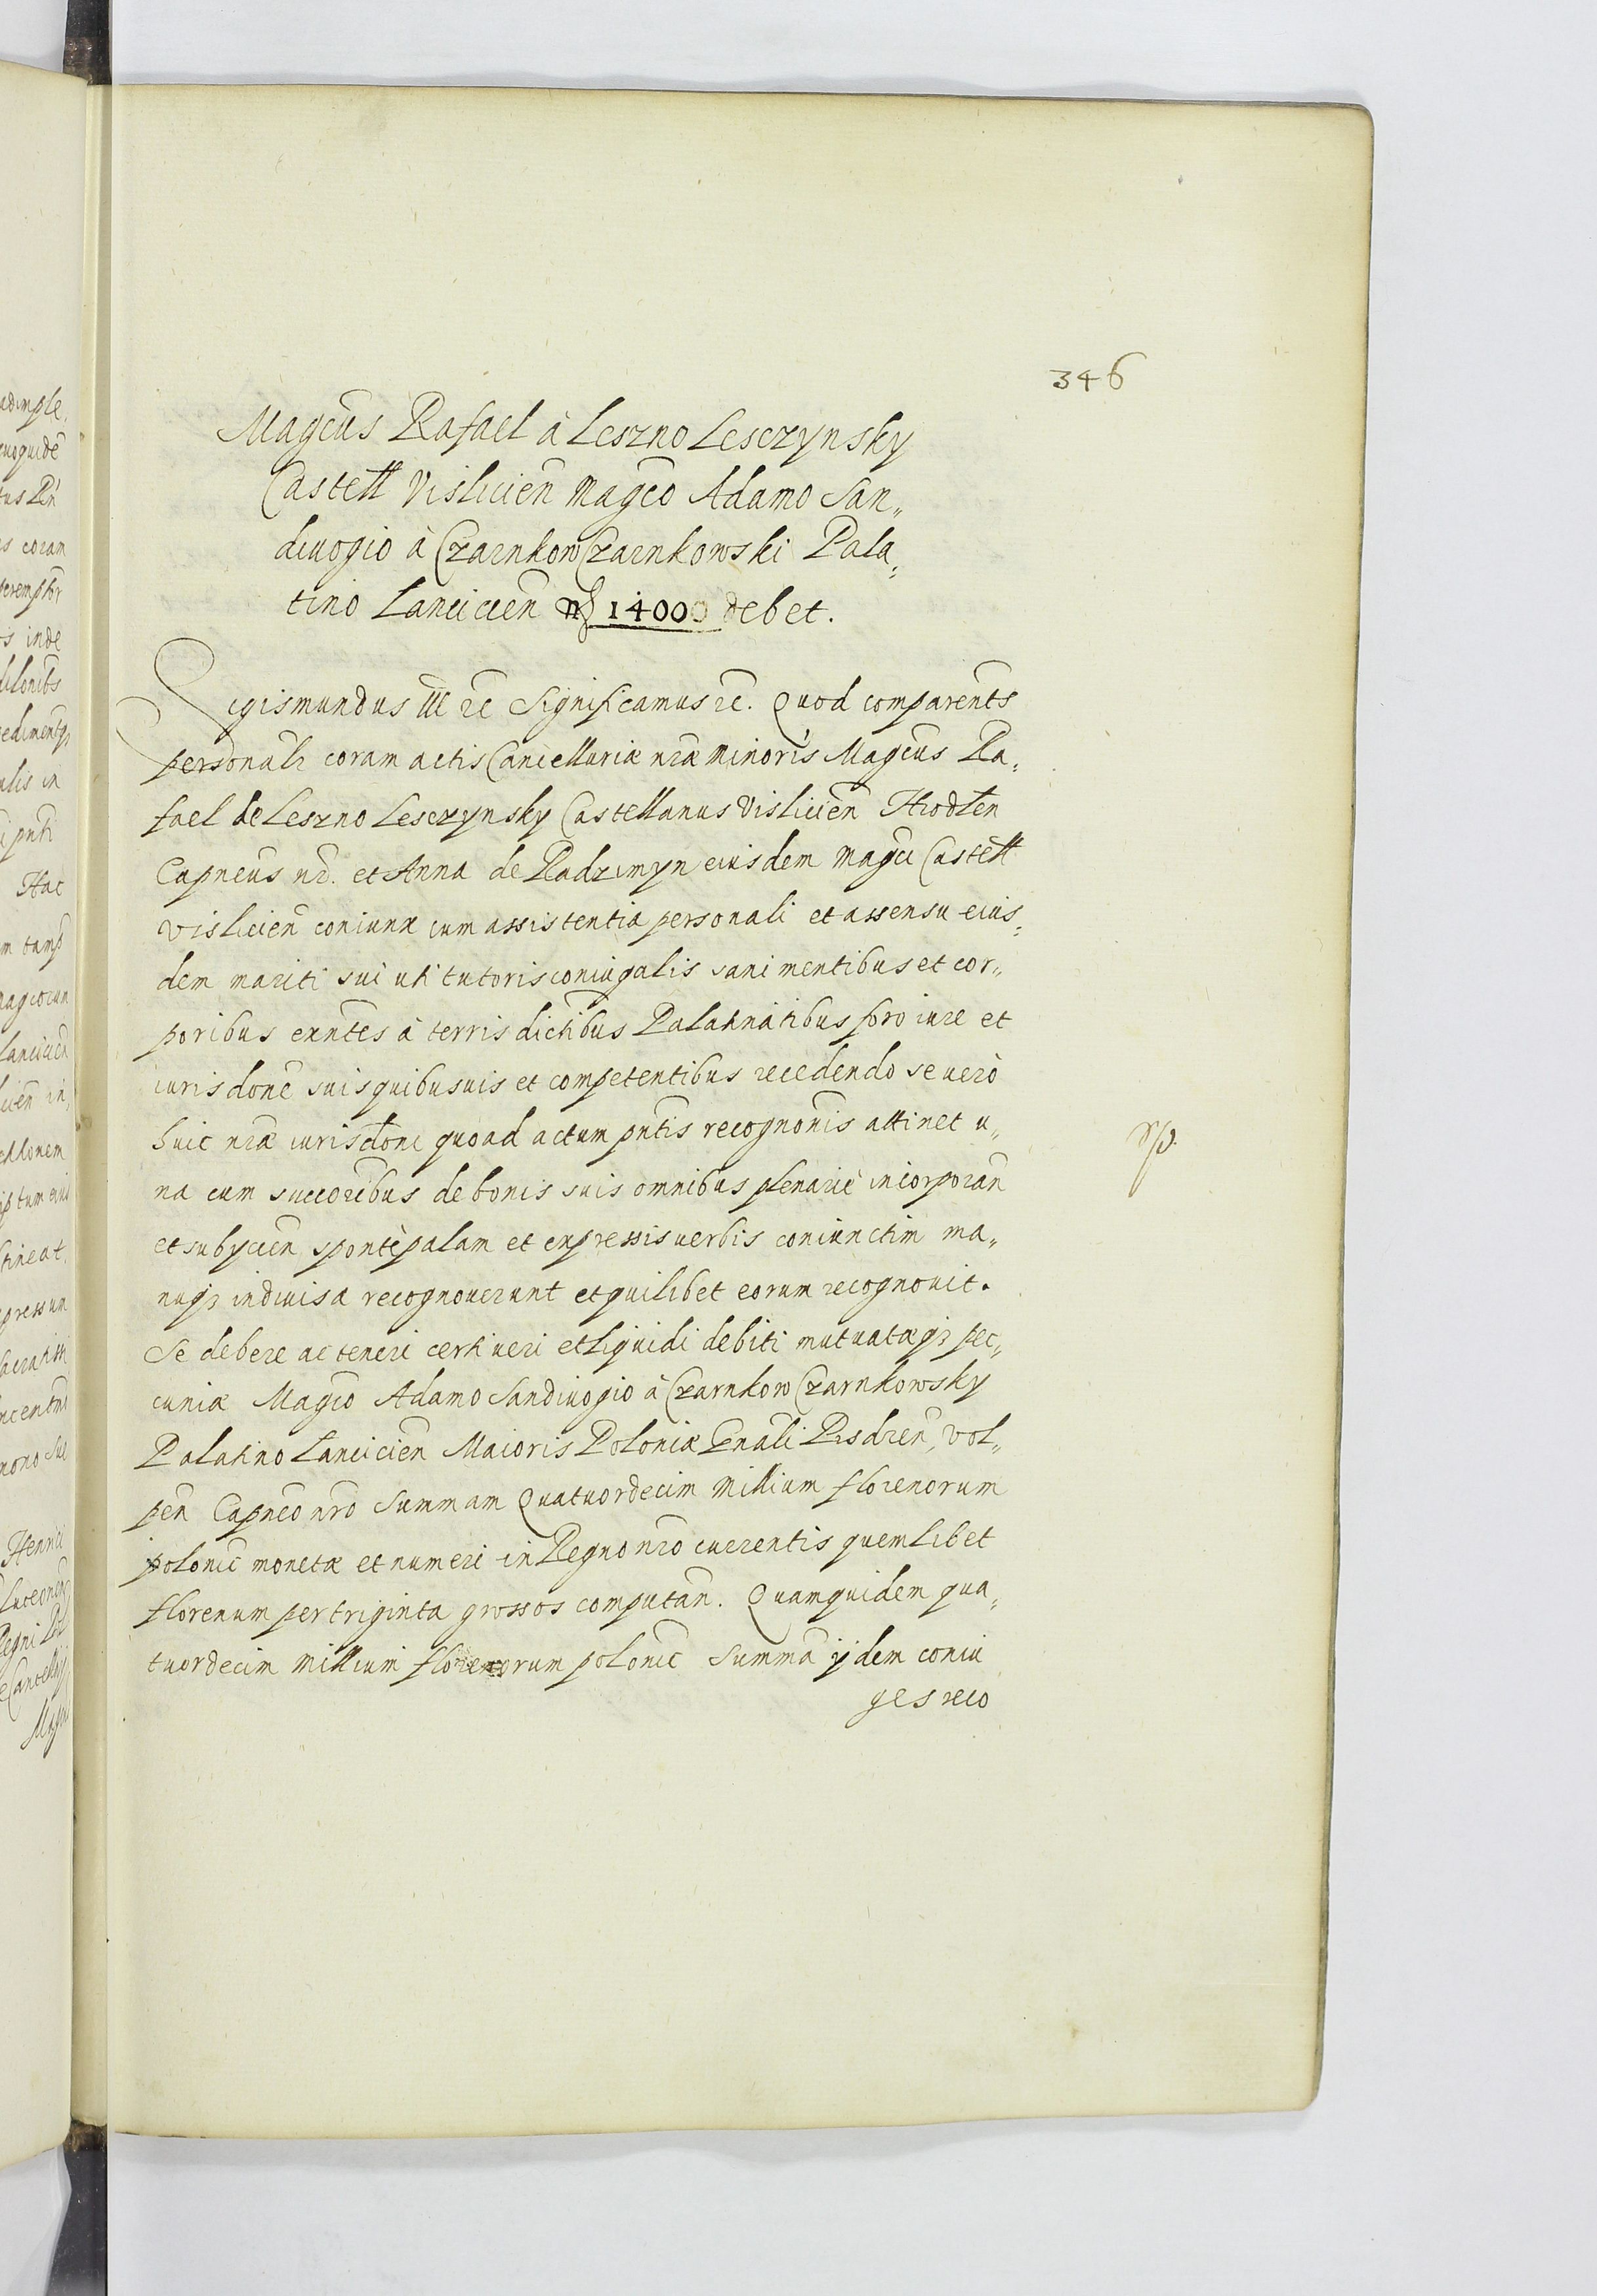 346
Magcus Rafael à Leszno Lesczynsky
Castell Vislicien Magco Adamo San„
diuogio à Czarnkow Czarnkowski Pala„
tino Lancicien 14000 debet.
Sigismundus III etc Significamus etc. Quod comparents
personalr coram actis Cancellariæ nræ minoris Magcus Ra„
fael de Leszno Lesczynsky Castellanus Vislicien Hrodlen
Capneus nr. et Anna de Radzimyn eiusdem Magci Castell
Vislicien coniunx cum assistentia personali et assensu eius„
dem mariti sui uti tutoris coniugalis sani mentibus et cor„
poribus exntes à terris dictibus Palatinatibus foro iure et
iurisdone suis quibusuis et competentibus recedendo se verò
huic nræ iurisdoni quoad actum pntis recognonis attinet u„
na cum succoribus de bonis suis omnibus plenariè incorporan
et subycien spontè palam et expressis uerbis coniunctim ma„
nuqз indiuisa recognouerunt et quilibet eorum recognouit.
Se debere ac teneri certi ueri et liquidi debiti mutuatæqз pec„
cuniæ Magco Adamo Sandiuogio à Czarnkow Czarnkowsky
Palatino Lancicien Maioris Poloniæ Gnali Pisdren, Vol„
pen Capneo nro Summam Quatuordecim Millium florenorum
polonic monetæ et numeri in Regno nro currentis quemlibet
florenum per triginta grossos computan. Quamquidem qua„
tuordecim Millium florenorum polonic Summa ijdem coniu
ges reco